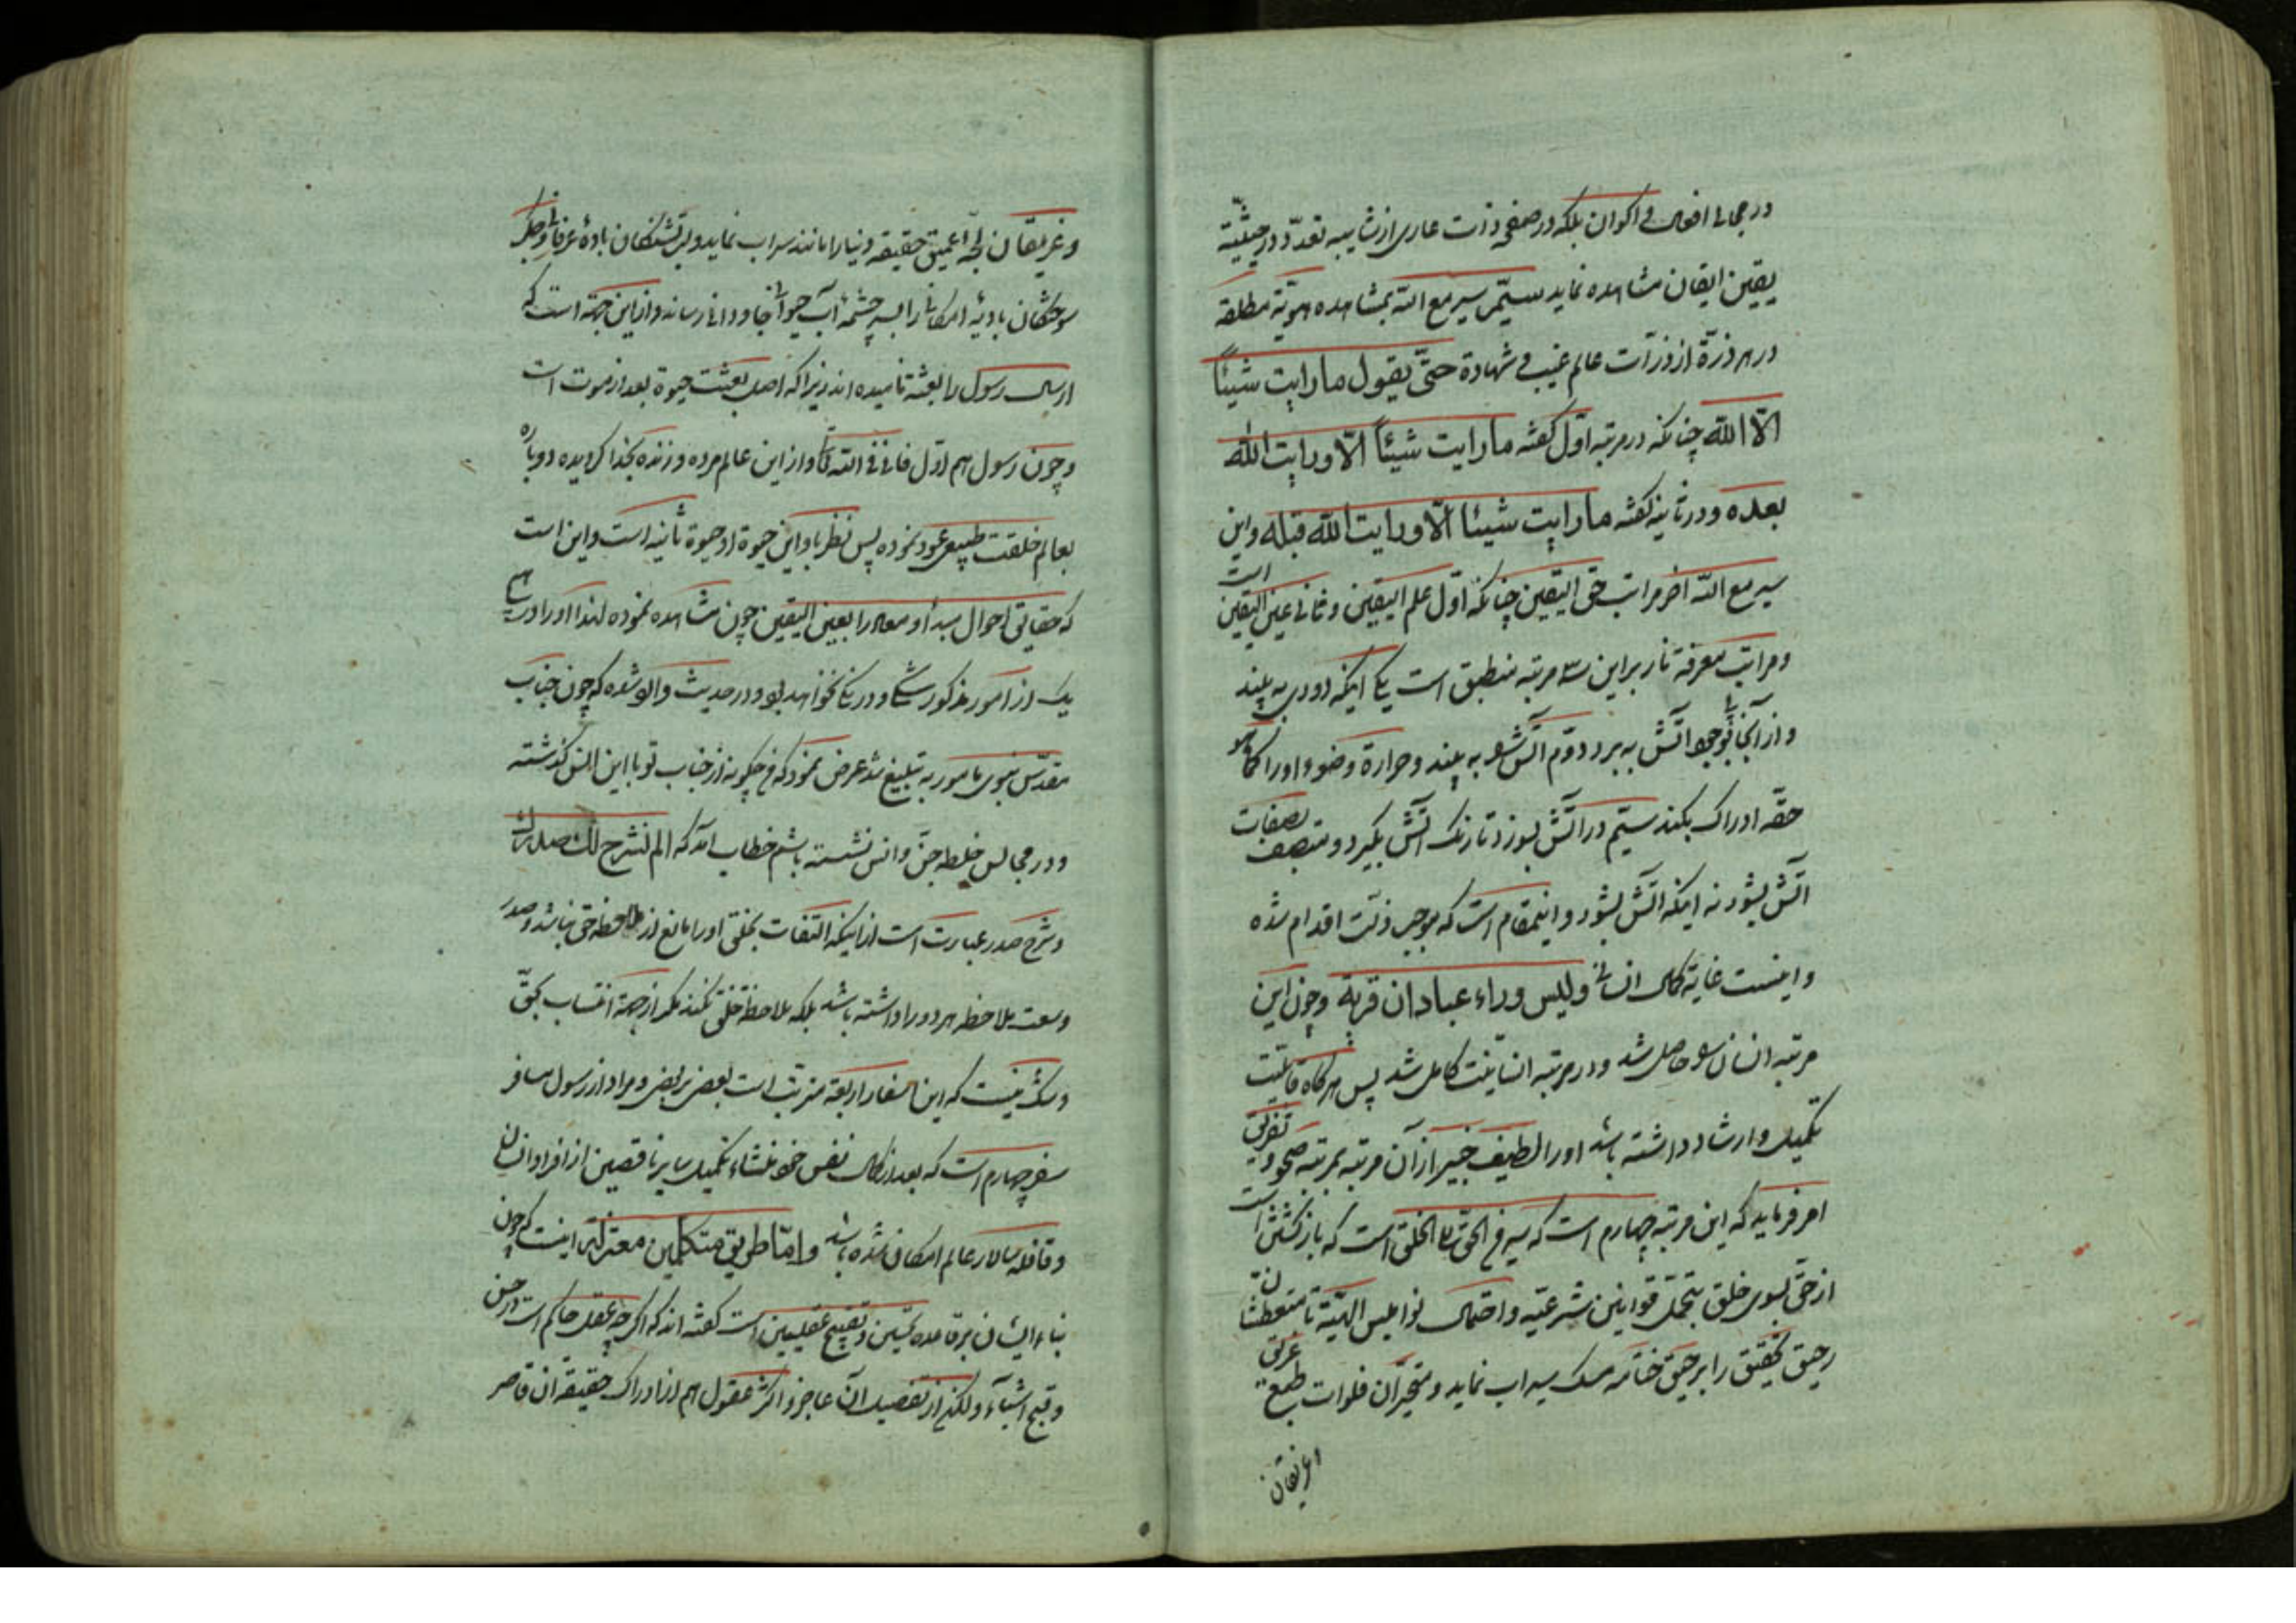 در مجالی افعال و اکوان بلکه در صفحه ذات عاری از شایبه تعدّد و در حیثیّته
یقین ایقان مشاهده نماید سیّم سیر مع الله بمشاهده هویّة مطلقه
در هر ذرّة از ذرّات عالم غیب و شهادة حتّی یقول ما رایت شیئاً
الّا الله چنانکه در مرتبه اوّل گفته ما رایت شیئاً الّا ورایت الله
بعده و در ثانیه گفته ما رایت شیئا الّا ورایت الله قبله و این
سیر مع الله اخر مراتب حق الیقین چنانکه اول علم الیقین و ثانی عین الیقین است
و مراتب معرفة نار بر این سه مرتبه منطبق است یکی اینکه دودی به بیند
و از آنجا بوجود آتش په برد دوّم آتش را به بیند و حرارة و ضوء او را کما هو
حقّه ادراک بکند سیّم در آتش بسوزد تا رنگ آتش بگیرد و متصف بصفات
آتش بشود نه اینکه آتش بشود و اینمقام است که موجب زلّت اقدام شده
و اینست غایة کمال انسانی ولیس وراء عبادان قریة و چون این
مرتبه انسان را حاصل شد و در مرتبه انسانیّت کامل شد پس هرگاه قابلیّت
تکمیل و ارشاد داشته باشد او را لطیف خبیر از آن مرتبه بمرتبه صحو و تفرقی
امر فرماید که این مرتبه چهارم است که سیر من الحق الی الخلق است که بازگشتن است
از حق بسوی خلق بتحمّل قوانین شرعیّه و احتمال نوامیس الهیّة تا متعطّشان
رحیق تحقیق را برحیق ختامه مسک سیراب نماید و متحیّران فلوات طبع
و غریقان
و غریقان لجّه عمیق حقیقه دنیا را مانند سراب نماید ولب تشنگان باده عرفان و جگر
سوختگان بادیه امکانرا بسر چشمه آب حیوان جاودانی رساند و از این جهة است که
ارسال رسول را بعثة نامیده اند زیرا که اصل بعثت حیوة بعد از موت است
و چون رسول هم اول فانی فی الله و از این عالم مرده و زنده بخدا گردیده دوباره
بعالم خلقت طبیعی عود نموده پس نظر باو این حیوة او حیوة ثانیه است و این است
که حقایق احوال مبدأ و معاد را بعین الیقین چون مشاهده نموده لهذا او را در هیچ
یک از امور مذکوره شکی و در نکا نخواهد بود و در حدیث وارد شده که چون جناب
مقدّس نبوی مامور به تبلیغ شد عرض نمود که من چگونه از جناب تو با این انس گذشته
و در مجالس خلطه جن و انس نشسته باشم خطاب آمد که الم نشرح لک صدرک
و شرح صدر عبارت است از اینکه التفات بخلق او را مانع از ملاحظه حق نباشد و صدر
وسعت ملاحظه هر دو را داشته باشد بلکه ملاحظة خلق نکند مگر از جهة انتساب بحقّ
و شک نیست که این اسفار اربعة مترتب است بعضی بر بعضی و مراد از رسول مسافر
سفر چهارم است که بعد از کمال نفس خود منشاء تکمیل سایر ناقصین از افراد انسان
و قافله سالار عالم امکانی شده باشد و امّا طریق متکلمین معتزلة اینست که چون
بناء ایشان بر قاعده تحسین و تقبیح عقلیین است گفته اند که اگر چه عقل حاکم است در حسن
و قبح اشیاء و لکن از تفصیل آن عاجز و اکثر عقول هم از ادراک حقیقة آن قاصر